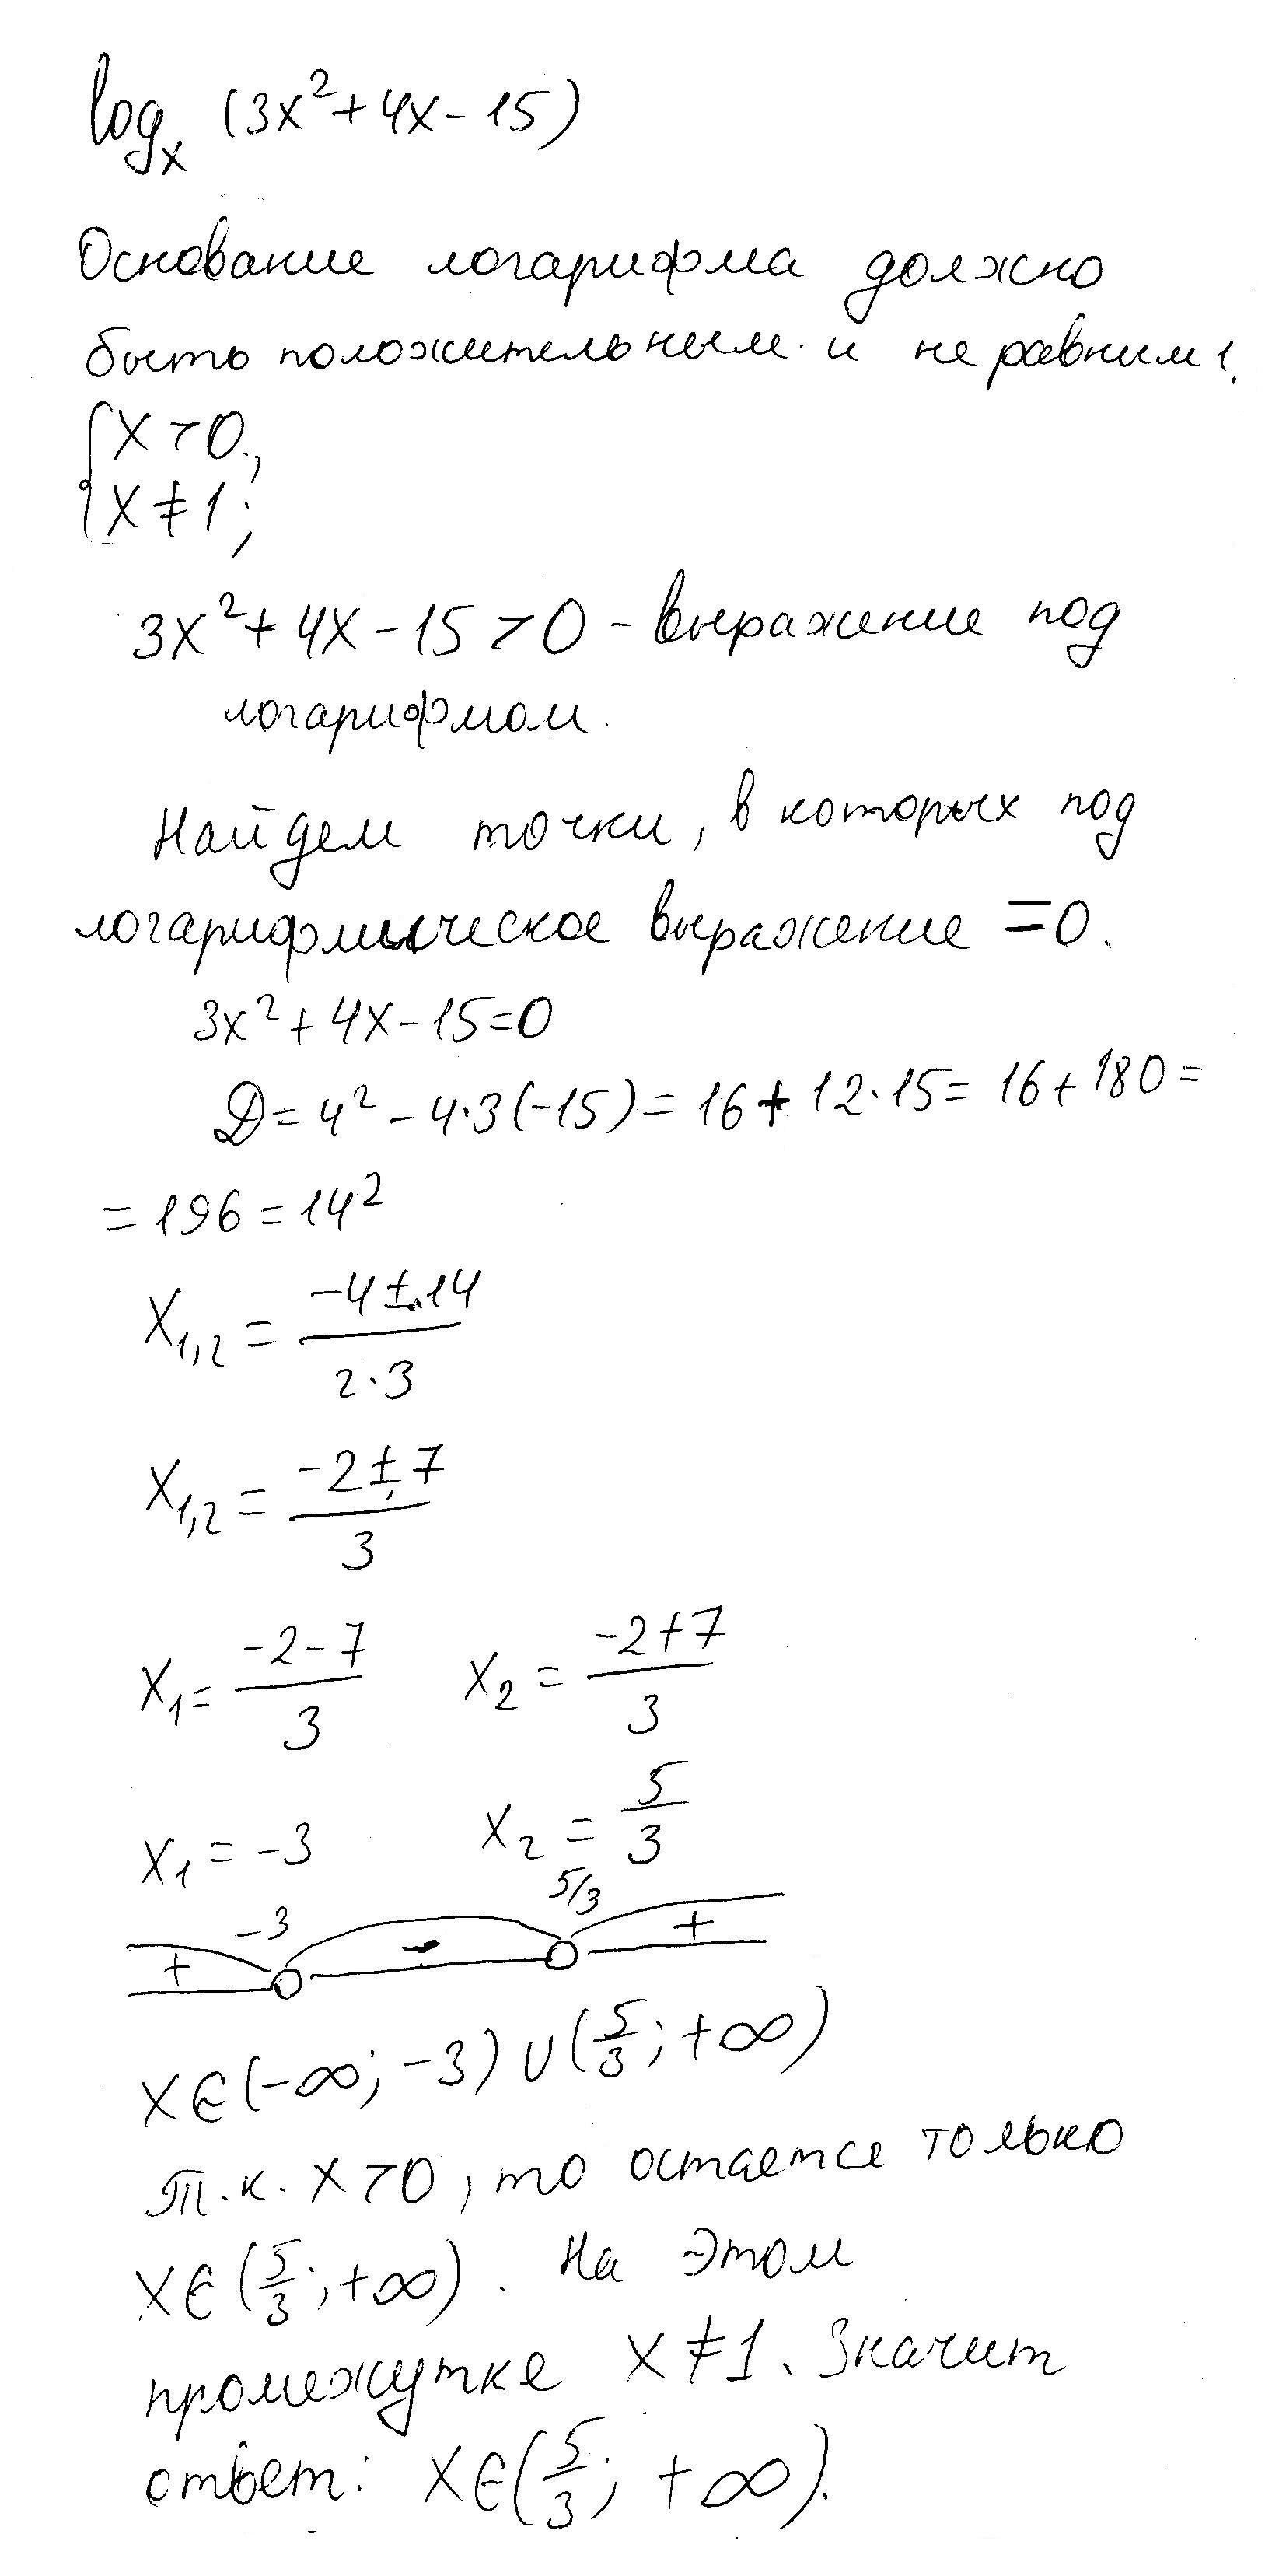 log_x (3x² + 4x - 15)
Основание логарифма должно
быть положительным и не равним 1.
{ x > 0;
x ≠ 1;
3x² + 4x - 15 > 0 - выражение под
логарифмом.
Найдем точки, в которых под
логарифмическое выражение = 0.
3x² + 4x - 15 = 0
D = 4² - 4·3(-15) = 16 + 12·15 = 16 + 180 =
= 196 = 14²
x_{1,2} = (-4 ± 14)/(2·3)
x_{1,2} = (-2 ± 7)/3
x₁ = (-2 - 7)/3 x₂ = (-2 + 7)/3
x₁ = -3 x₂ = 5/3
-3 5/3
+ - +
x ∈ (-∞; -3) ∪ (5/3; +∞)
т.к. x > 0, то остается только
x ∈ (5/3; +∞). На этом
промежутке x ≠ 1. Значит
ответ: x ∈ (5/3; +∞).